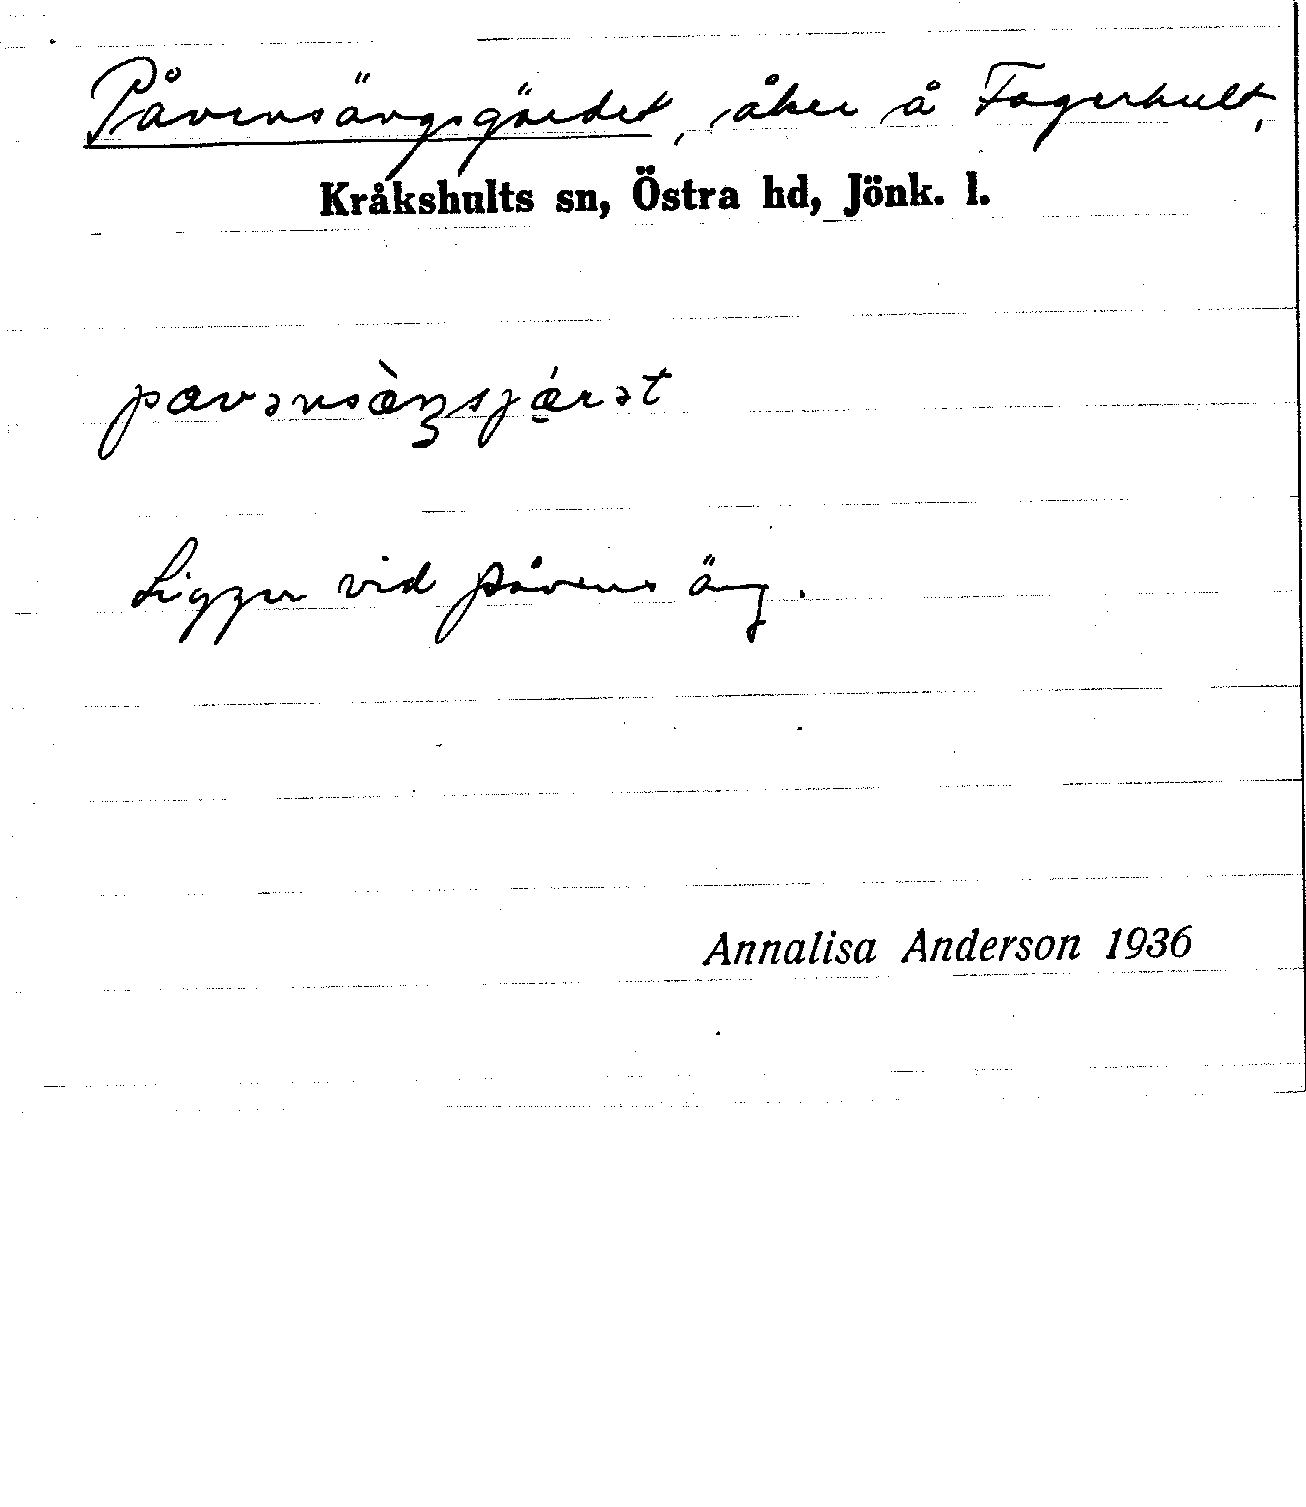 Påvensängsgärdet, åker å Fagerhult,
Kråkshults sn, Östra hd, Jönk. l.
pavənsæ̀ŋsjǽrət
Ligger vid påvens äng.
Annalisa Anderson 1936